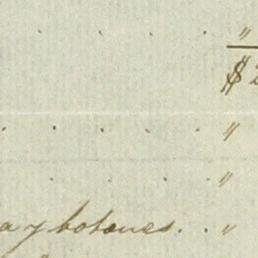 . . . . "
$2
. . . . . "
. . . . "
a y botones. . "